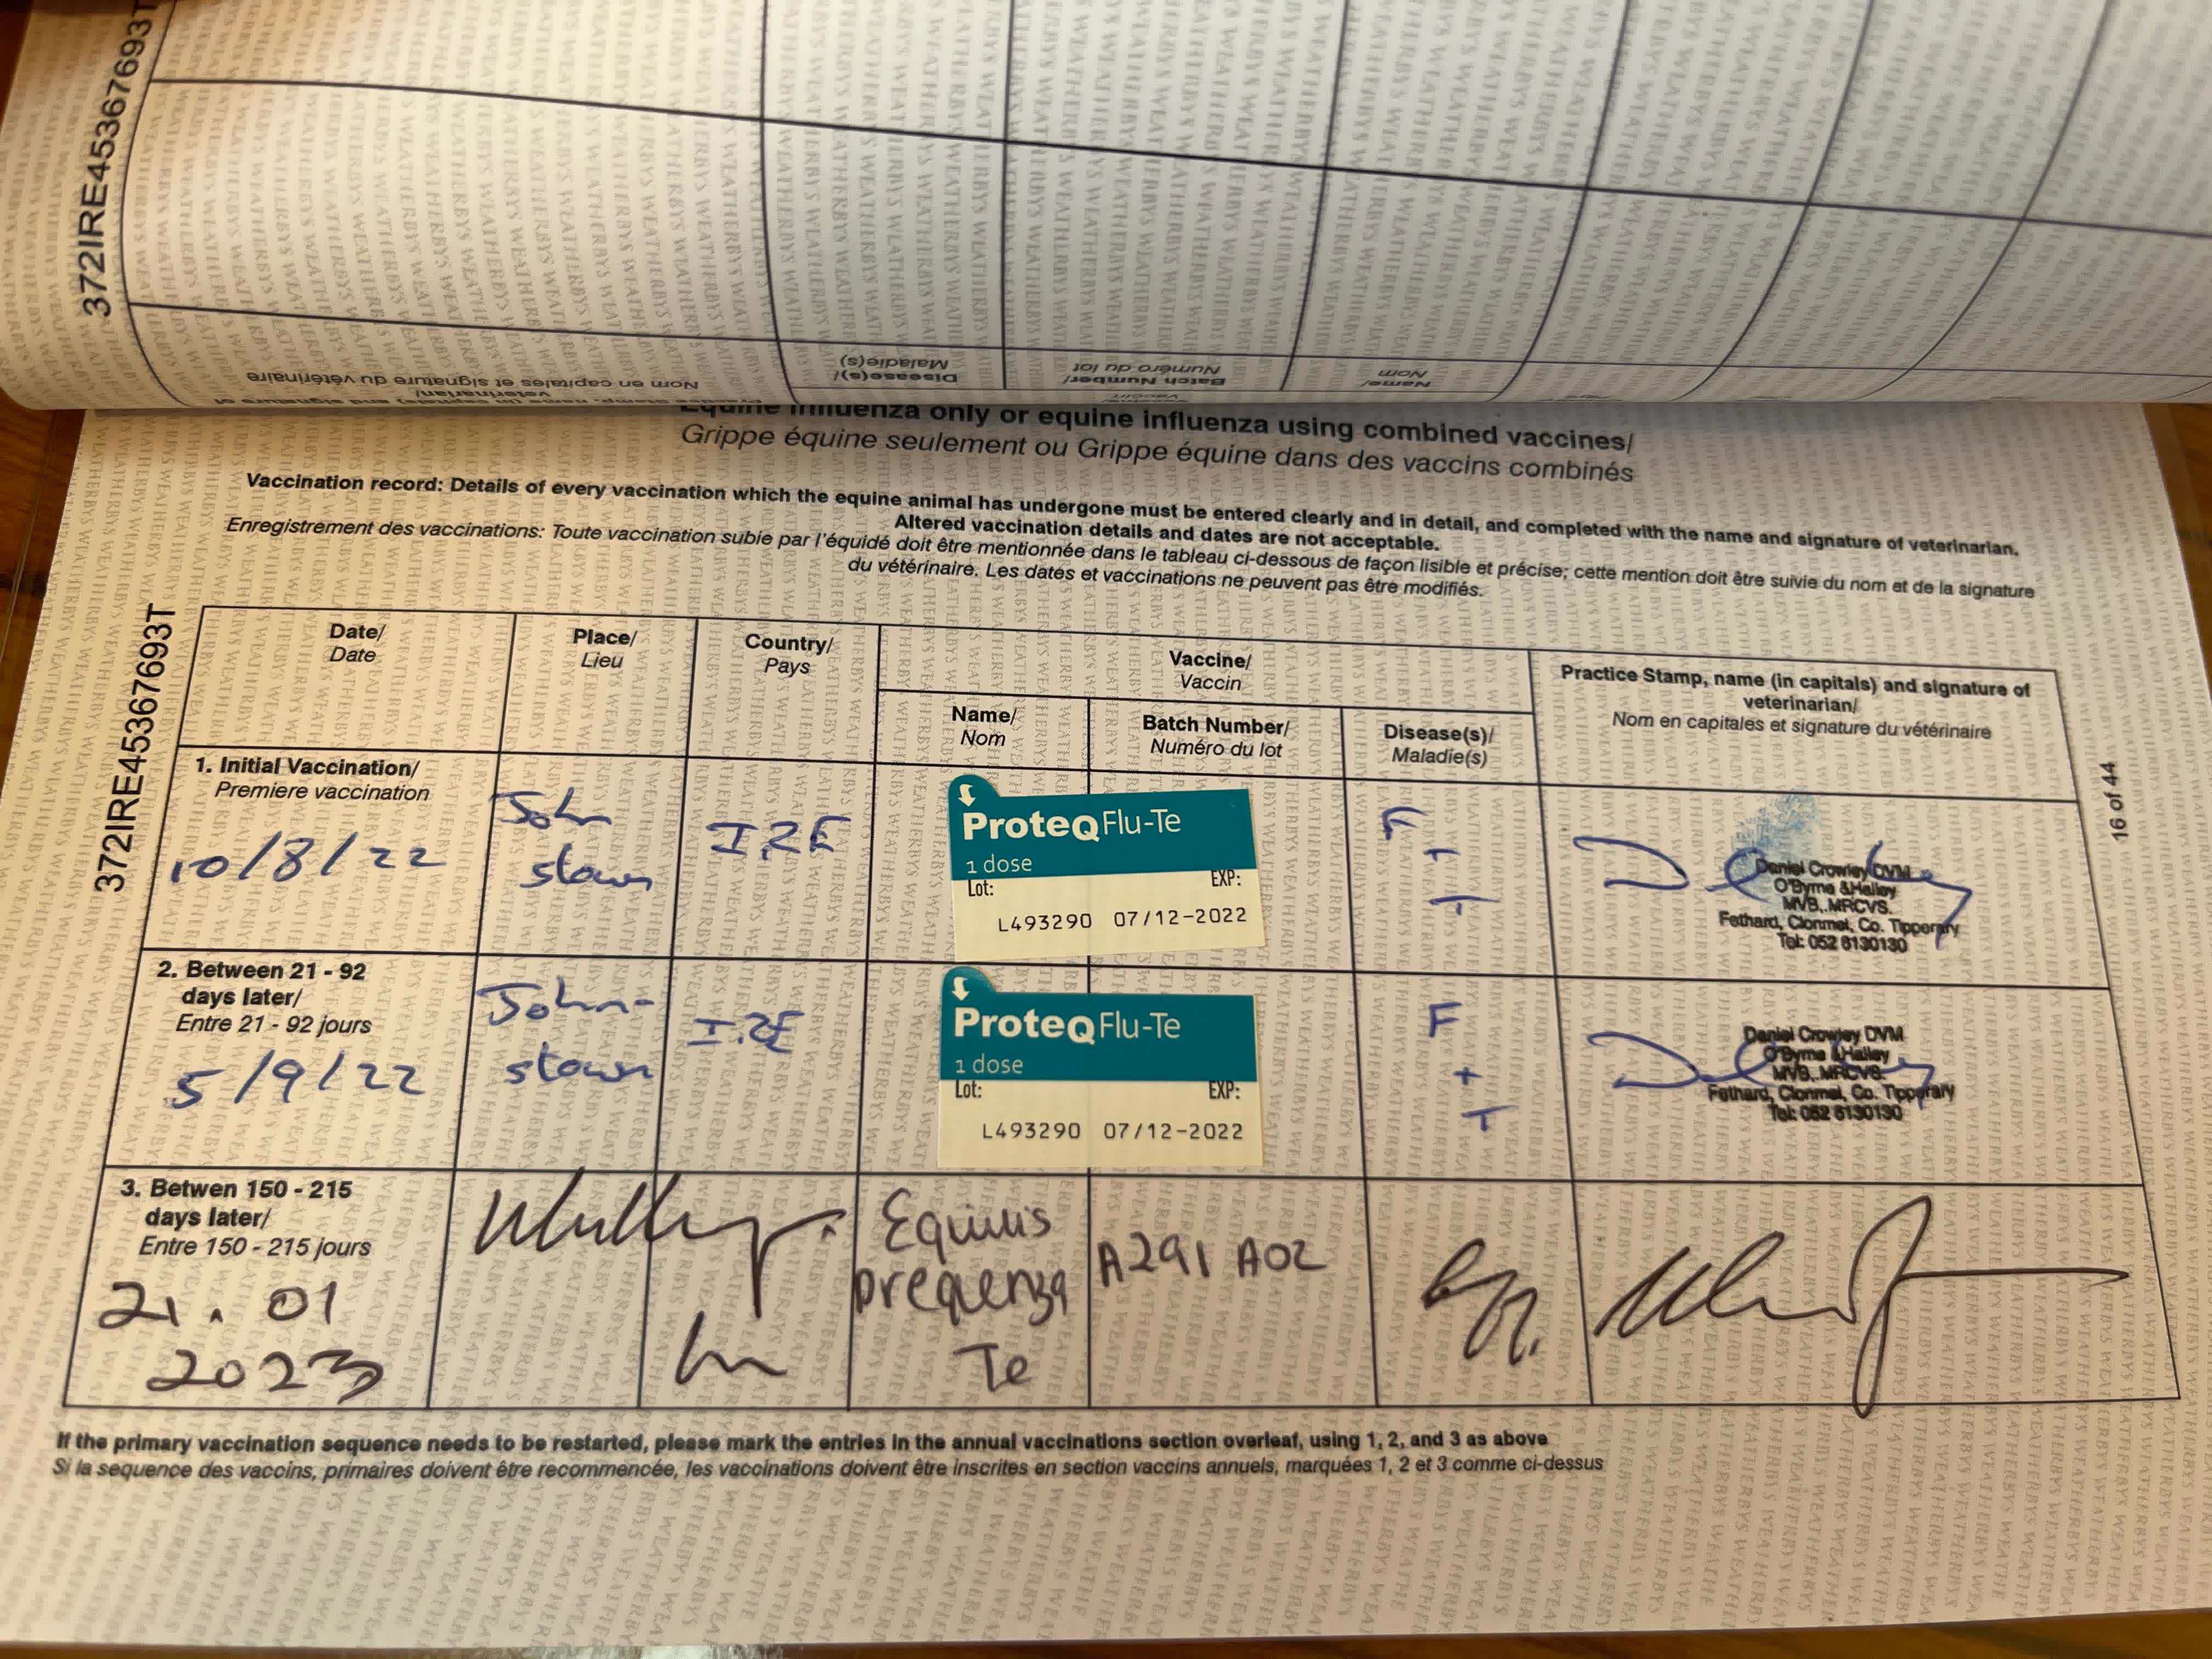 372IRE45367693T
Disease(s)/
Maladie(s)
Batch Number/
Numéro du lot
Name/
Nom
veterinarian/
Nom en capitales et signature du vétérinaire
Equine influenza only or equine influenza using combined vaccines/
Grippe équine seulement ou Grippe équine dans des vaccins combinés
Vaccination record: Details of every vaccination which the equine animal has undergone must be entered clearly and in detail, and completed with the name and signature of veterinarian.
Altered vaccination details and dates are not acceptable.
Enregistrement des vaccinations: Toute vaccination subie par l'équidé doit être mentionnée dans le tableau ci-dessous de façon lisible et précise; cette mention doit être suivie du nom et de la signature
du vétérinaire. Les dates et vaccinations ne peuvent pas être modifiés.
372IRE45367693T
Date/
Date
Place/
Lieu
Country/
Pays
Vaccine/
Vaccin
Name/
Nom
Batch Number/
Numéro du lot
Disease(s)/
Maladie(s)
Practice Stamp, name (in capitals) and signature of
veterinarian/
Nom en capitales et signature du vétérinaire
16 of 44
1. Initial Vaccination/
Premiere vaccination
10/8/22
John
stown
IRE
ProteqFlu-Te
1 dose
Lot:
EXP:
L493290 07/12-2022
F
+
T
Daniel Crowley DVM
O'Byrne & Halley
MVB, MRCVS.
Fethard, Clonmel, Co. Tipperary
Tel: 052 6130130
2. Between 21 - 92
days later/
Entre 21 - 92 jours
5/9/22
John-
stown
IRE
ProteqFlu-Te
1 dose
Lot:
EXP:
L493290 07/12-2022
F
+
T
Daniel Crowley DVM
O'Byrne & Halley
MVB, MRCVS.
Fethard, Clonmel, Co. Tipperary
Tel: 052 6130130
3. Betwen 150 - 215
days later/
Entre 150 - 215 jours
21. 01
2023
Equilis
prequenza
Te
A291 A02
If the primary vaccination sequence needs to be restarted, please mark the entries in the annual vaccinations section overleaf, using 1, 2, and 3 as above
Si la sequence des vaccins, primaires doivent être recommencée, les vaccinations doivent être inscrites en section vaccins annuels, marquées 1, 2 et 3 comme ci-dessus